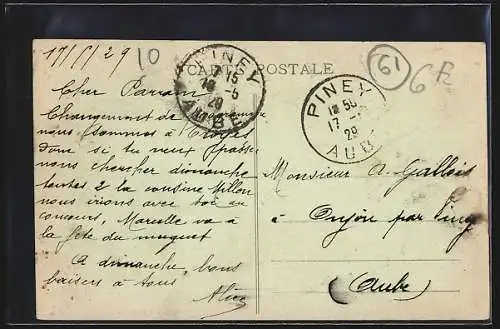 17/5/29
10
CARTE POSTALE
61
6 F
PINEY
7 15
18 -5
29
AUBE
PINEY
17 -5
29
AUBE
Cher Parrain
Changement de programme
nous sommes à Troyes
donc si tu veux passer
nous chercher dimanche
toutes 2 la cousine
nous irions avec toi au
concours, Marcelle va à
la fête du muguet
A dimanche, bons
baisers à tous
Alice
Monsieur A. Gallois
à Onjon par Piney
(Aube)